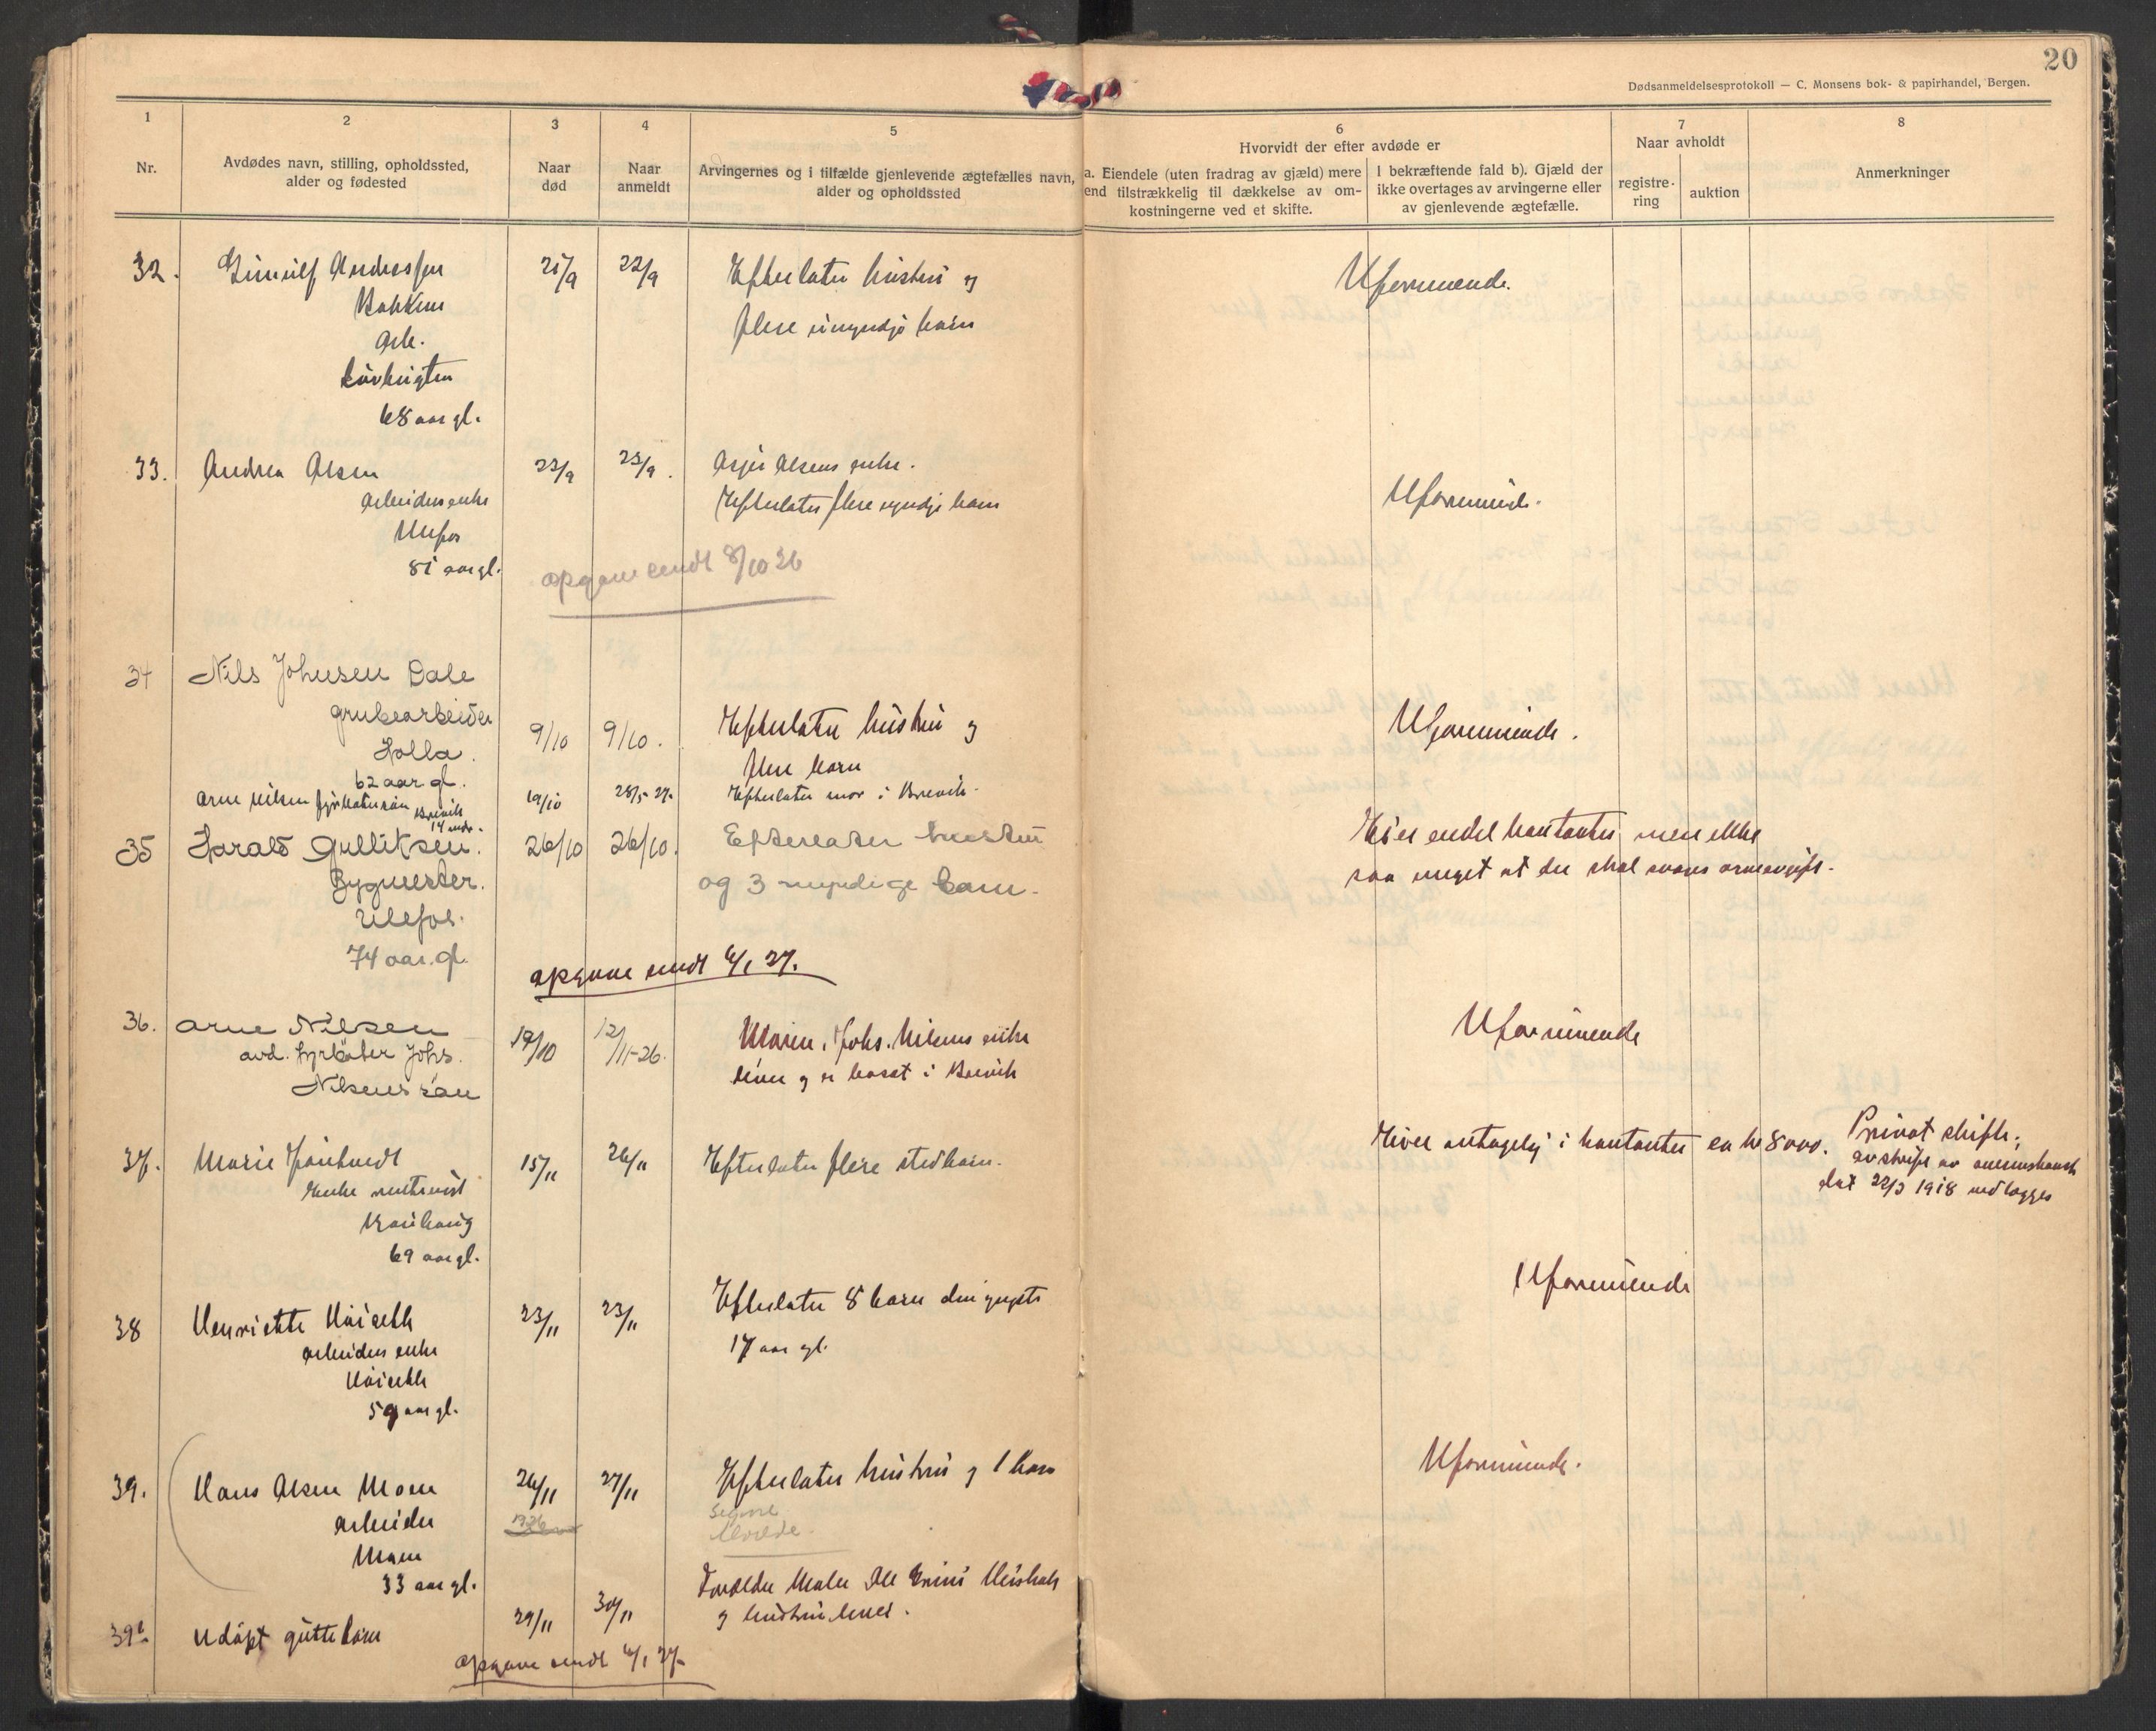 20
Dødsanmeldelsesprotokoll — C. Monsens bok- & papirhandel, Bergen.
1
2
3
4
5
6
7
8
Nr.
Avdødes navn, stilling, opholdssted,
alder og fødested
Naar
død
Naar
anmeldt
Arvingernes og i tilfælde gjenlevende ægtefælles navn,
alder og opholdssted
Hvorvidt der efter avdøde er
a. Eiendele (uten fradrag av gjæld) mere
end tilstrækkelig til dækkelse av om-
kostningerne ved et skifte.
I bekræftende fald b). Gjæld der
ikke overtages av arvingerne eller
av gjenlevende ægtefælle.
Naar avholdt
registre-
ring
auktion
Anmerkninger
32. Gunulf Andressen 21/9 22/9 Efterlater hustru og Uformuende.
Bakken flere umyndige barn
Arb.
68 aar gl.
33. Andrea Olsen 22/9 23/9. Olsens enke.
Arbeiders enke Efterlater flere myndige barn Uformuende.
Ulefos
81 aar gl.
opgave sendt 8/10 26
34 Nils Johnsen Dale
grubearbeider 9/10 9/10. Efterlater hustru og Uformuende.
Holla. flere barn
62 aar gl.
Arne Nilsen fyrbøtersøn Brevik 19/10 28/5-27. Efterlater mor i Brevik.
14 mdr.
35 Harald Gullitksen. 26/10 26/10. Efterlater hustru Eier endel kontanter, men ikke
Bygmester. og 3 myndige barn. saa meget at der skal svares arveavgift.
Ulefos.
74 aar. gl.
opgave sendt 4/1 27.
36. Arne Nilsen 19/10 12/11-26. Maren, Johs. Nilsens enke Uformuende
avd. fyrbøter Johs. lever og er bosat i Brevik
Nilsens søn
37. Marie 15/11 26/11 Efterlater flere stedbarn. Eiver antagelig i kontanter ca kr 8000. Privat skifte,
Enke avskrift av
69 aar gl. dat 22/3 1918 vedlægges
38 Henriette Høiseth 23/11 23/11 Efterlater 8 barn den yngste Uformuende
arbeiders enke 17 aar gl.
Høiseth
59 aar gl.
39. Hans Olsen Moen 26/11 27/11 Efterlater hustru og 1 barn Uformuende.
arbeider 1926
Moen
33 aar gl.
39b Udøpt guttebarn 29/11 30/11 Forældre Maler Ole
og hustru lever.
opgave sendt 4/1 27.